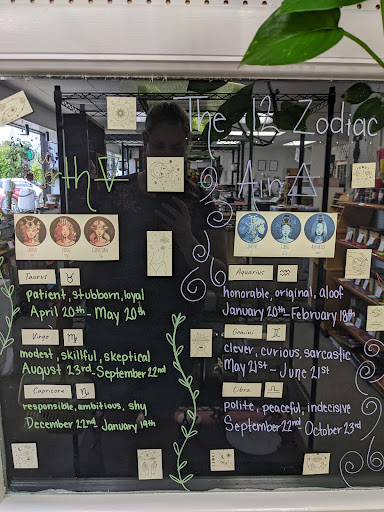 The 12 Zodiac
Earth
Air
Taurus
patient, stubborn, loyal
April 20th - May 20th
Virgo
modest, skillful, skeptical
August 23rd - September 22nd
Capricorn
responsible, ambitious, shy
December 22nd January 19th
Aquarius
honorable, original, aloof
January 20th - February 18th
Gemini
clever, curious, sarcastic
May 21st - June 21st
Libra
polite, peaceful, indecisive
September 22nd October 23rd